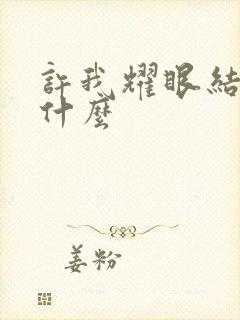 許我耀眼結
什麼
姜粉